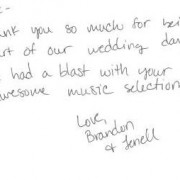 -
ank you so much for bein
art of our wedding day
had a blast with your
wesome music selection
Love,
Brandon
& Jenell